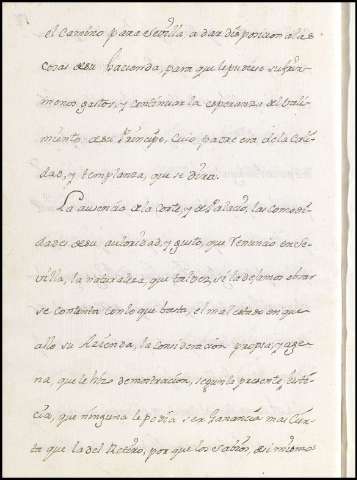 9
el Camino para Sevilla, a dar disposicion a las
cosas de su hacienda, para que le pudiese sufrir
menos gastos, y continuar la esperanza del Vali-
miento de su Principe, cuio padre era de la Cali-
dad, y templanza, que se dira.
La ausencia de la Corte, y de Palacio, las comodi-
dades de su autoridad, y gusto, que tenia en Se-
villa, la naturaleza que tal vez, si la dejamos obrar
se contenta con lo que basta, el mal estado en que
allo su Azienda, la consideracion propia, y age-
na, que le hizo demostracion, segun la presente histo-
ria, que ninguna le podia ser ganancia mas cier-
ta que la del Retiro, por que los sabios, asi mismo